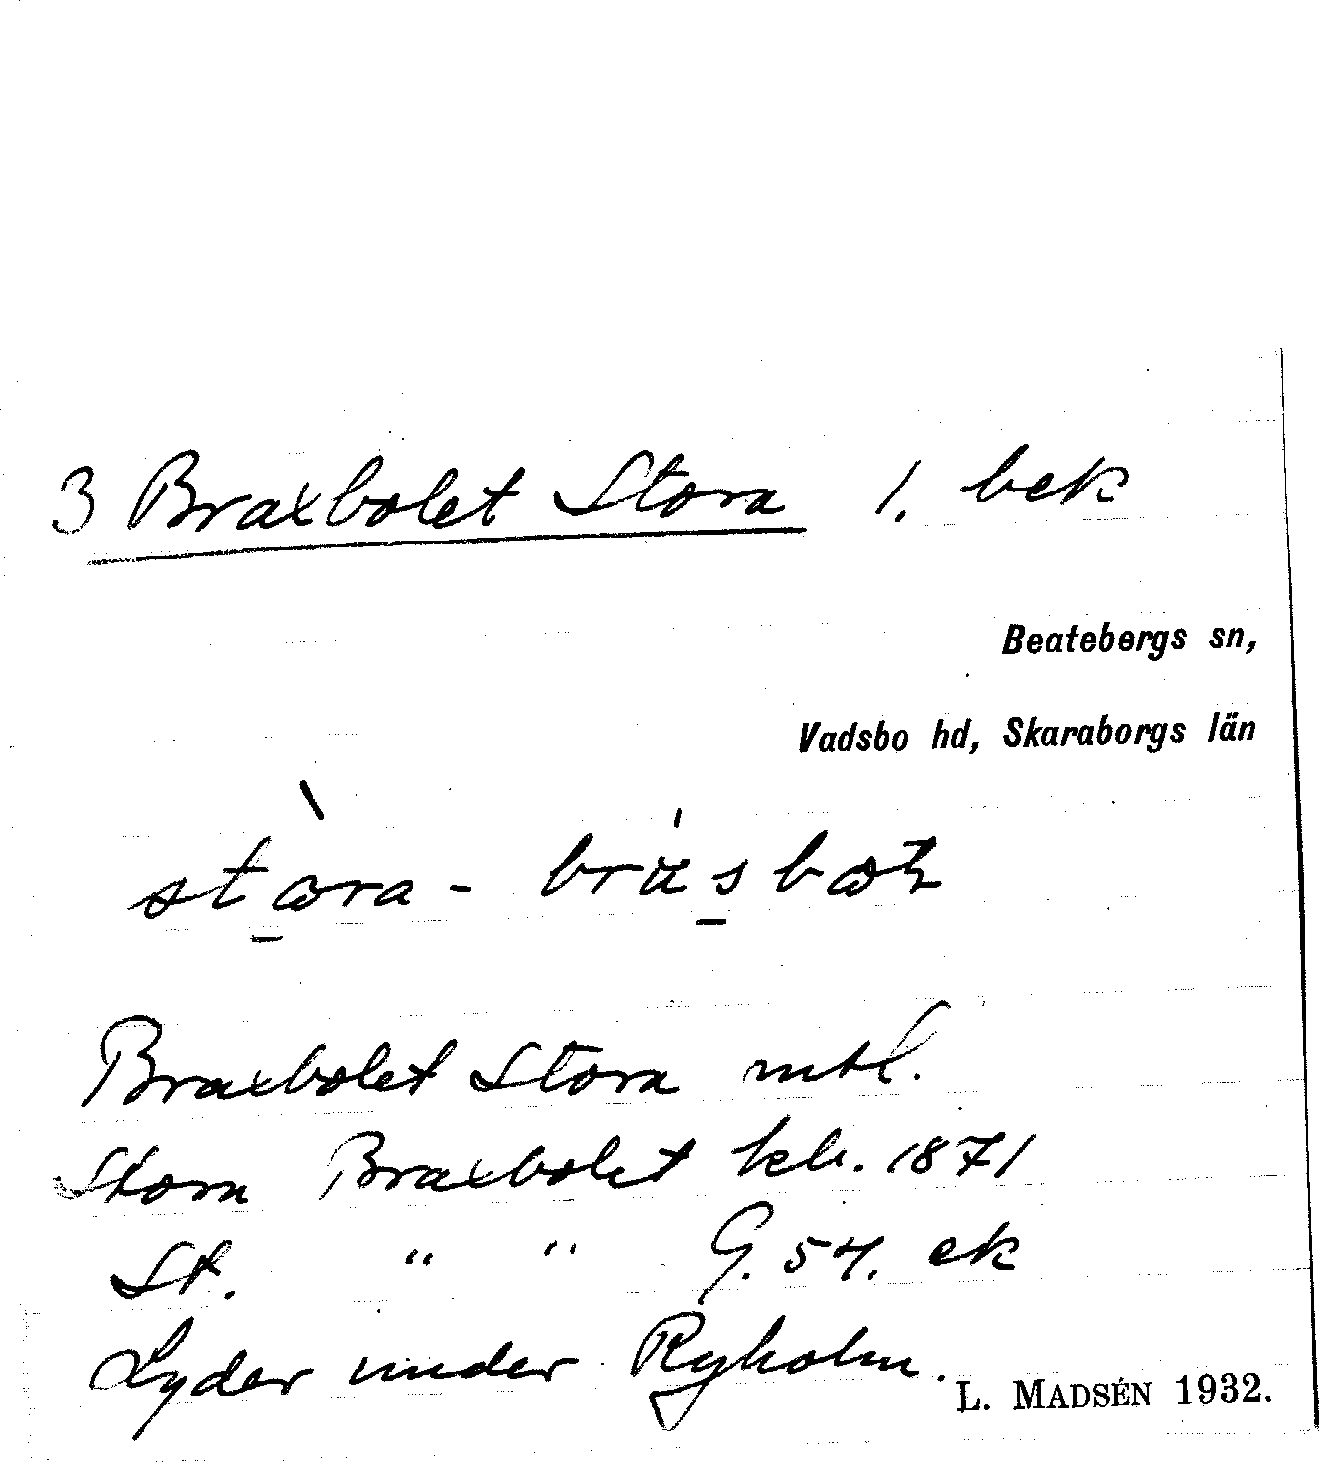 3 Braxbolet Stora 1. bek
Beatebergs sn,
Vadsbo hd, Skaraborgs län
Braxbolet Stora mtl.
Stora Braxbolet kb. 1871
St. " " G. 54. ek
Lyder under Ryholm.
L. MADSÉN 1932.